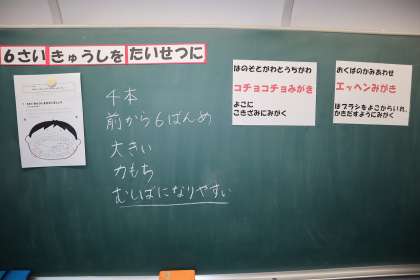 6さい きゅうしを たいせつに
4本
前から6ばんめ
大きい
力もち
むしばになりやすい
はのそとがわとうちがわ
コチョコチョみがき
よこに
こきざみにみがく
おくばのかみあわせ
エッヘンみがき
はブラシをよこからいれ、
かきだすようにみがく